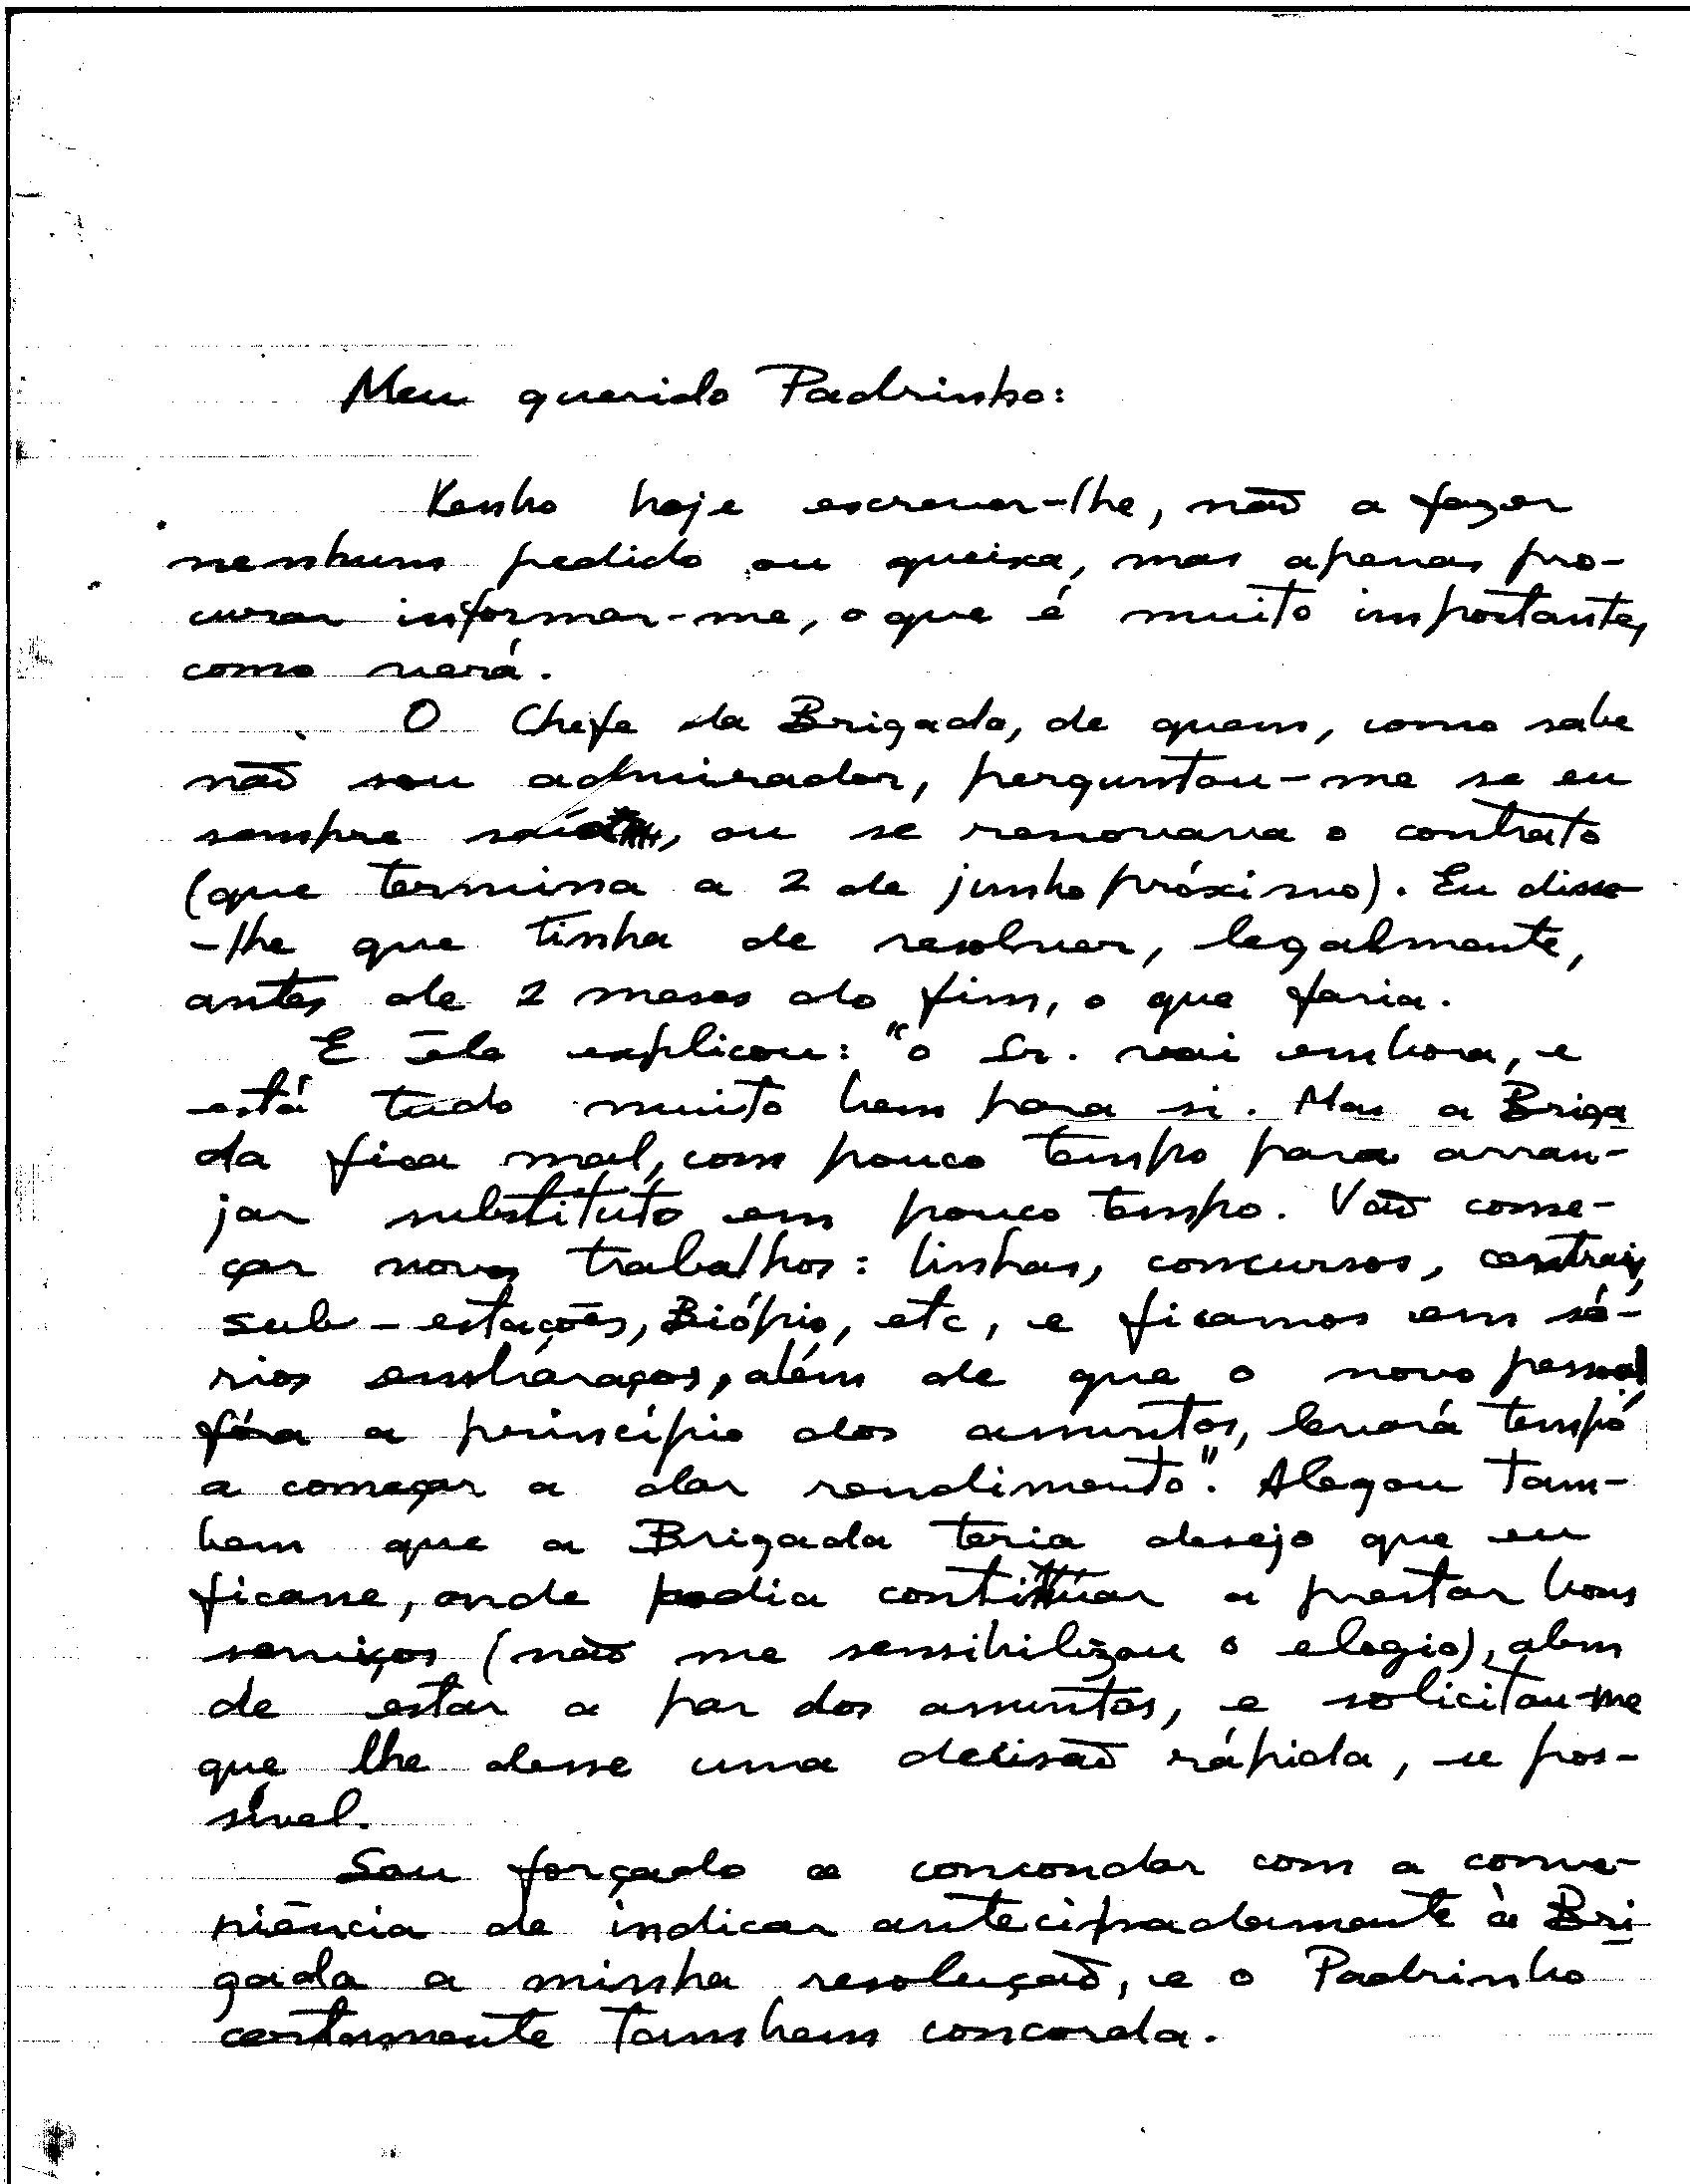 Meu querido Padrinho:
Venho hoje escrever-lhe, não a fazer
nenhum pedido ou queixa, mas apenas pro-
curar informar-me, o que é muito importante,
como verá.
O Chefe da Brigada, de quem, como sabe
não sou admirador, perguntou-me se eu
sempre ou se renovava o contrato
(que termina a 2 de junho próximo). Eu disse-
-lhe que tinha de resolver, legalmente,
antes de 2 meses do fim, o que faria.
E êle explicou: "o Sr. vai embora, e
está tudo muito bem para si. Mas a Briga
da fica mal, com pouco tempo para arran-
jar substituto em pouco tempo. Vão come-
çar novos trabalhos: linhas, concursos, centrais,
sub-estações, Biópio, etc, e ficamos em sé-
rios embaraços, além de que o novo pessoal,
fóra a princípio dos assuntos, levará tempo
a começar a dar rendimento". Alegou tam-
bem que a Brigada teria desejo que eu
ficasse, onde podia continuar a prestar bons
serviços (não me sensibilizou o elogio), alem
de estar a par dos assuntos, e solicitou-me
que lhe desse uma decisão rápida, se pos-
sível.
Sou forçado a concordar com a conve-
niência de indicar antecipadamente à Bri
gada a minha resolução, e o Padrinho
certamente tambem concorda.